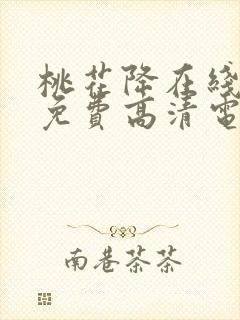 桃花降在綫
免費高清電
南巷茶茶